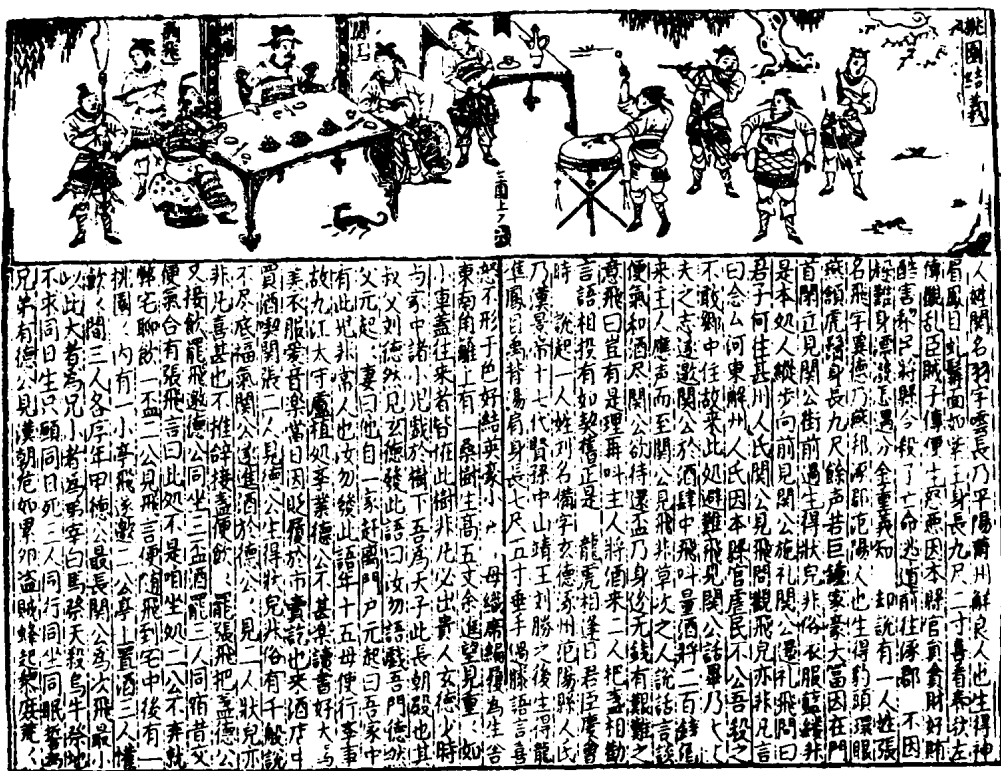 桃園結義
張飛
三國上
人辝關名羽字雲長乃平陽蒲州解良人也生得神
眉鳳目虬髯面如紫玉身長九尺二寸喜看春秋左
傳觀乱臣賊子傳便生怒惡因本縣官員貪財好賄
酷害黎民將縣令殺了亡命逃遁前往涿郡 不因
躲難身漂泊怎遇分金重義知 却說有一人姓張
名飛字翼德乃燕邦涿郡范陽人也生得豹頭環眼
燕頷虎鬚身長九尺餘声若巨鍾家豪大富因在門
首閑立見關公街前過生得狀皃非俗衣服藍縷非
是本処人縱步向前見關公施礼關公還礼飛問曰
君子何往甚州人氏關公見飛問觀飛皃亦非凡言
曰念ム河東解州人氏因本縣官虐民不公吾殺之
不敢鄉中住故來此処避難飛見關公話畢乃大丈
夫之志遂邀關公於酒肆中飛叫量酒將二百錢酒
來主人應声而至關公見飛非草次之人說話言談
便氣和酒尽關公欲待還盃乃身後无錢有艱難之
意飛曰豈有是理再叫主人將酒来二人把盞相勸
言語相投有如契舊正是 龍虎相逢日君臣慶會
時 說起一人姓刘名備字玄德涿州范陽縣人氏
乃漢景帝十七代賢孫中山靖王刘勝之後生得龍
准鳳目禹背湯肩身長七尺五寸垂手過膝語言喜
怒不形于色好結英豪小 母織席編履為生舍
東南角籬上有一桑樹生高五丈余進望見重〻如
小車蓋往來者皆怪此樹非凡必出貴人玄德少時
与家中諸小兒戲於樹下吾為天子此長朝殿也其
叔父刘德然見玄德發此語曰汝勿語戲吾門德然
父元起〻妻曰他自一家赶離門户元起曰吾家中
有此兒非常人也汝勿發此語年十五母使行孝事
故九江太守盧植処孝業德公不甚樂讀書好犬馬
美衣服愛音樂當日因販履於市賣訖也来酒店中
買酒喫關張二人見德公生得狀皃非俗有千般說
不尽底福氣關公遂進酒於德公〻見二人狀皃亦
非凡喜甚也不推辞接盞便飲〻罷張飛把盞德公
又接飲罷飛邀德公同坐三盃酒罷三人同宿昔交
便氣合有張飛言曰此処不是咱坐処二公不弃就
弊宅聊飲一盃二公見飛言便随飛到宅中後有一
桃園〻内有一小亭飛遂邀二公亭上置酒三人懽
飲〻間三人各序年甲德公最長關公為次飛最小
以此大者為兄小者為弟宰白馬祭天殺烏牛祭地
不求同日生只願同日死三人同行同坐同眠誓為
兄弟有德公見漢朝危如累卵盜賊蜂起黎庶荒〻